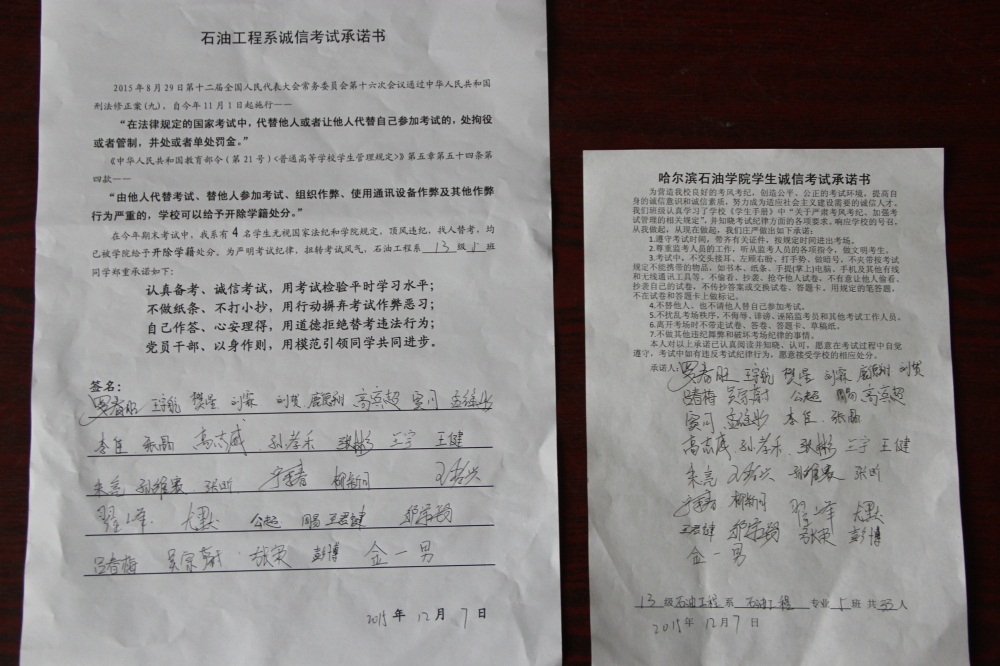 石油工程系诚信考试承诺书
2015年8月29日第十二届全国人民代表大会常务委员会第十六次会议通过中华人民共和国
刑法修正案(九),自今年11月1日起施行——
“在法律规定的国家考试中,代替他人或者让他人代替自己参加考试的,处拘役
或者管制,并处或者单处罚金。”
《中华人民共和国教育部令(第21号)<普通高等学校学生管理规定>》第五章第五十四条第
四款——
“由他人代替考试、替他人参加考试、组织作弊、使用通讯设备作弊及其他作弊
行为严重的,学校可以给予开除学籍处分。”
在今年期末考试中,我系有4名学生无视国家法纪和学院规定,顶风违纪,找人替考,均
已被学院给予开除学籍处分。为严明考试纪律,扭转考试风气,石油工程系 13 级 5 班
同学郑重承诺如下:
认真备考、诚信考试,用考试检验平时学习水平;
不做纸条、不打小抄,用行动摒弃考试作弊恶习;
自己作答、心安理得,用道德拒绝替考违法行为;
党员干部、以身作则,用模范引领同学共同进步。
签名:
王宇航 樊星 刘霖 刘贺 高京超
李佳 张晶 高志威 孙孝乐 张彬 王宇 王健
朱亮 孙雅晨 张昕 柳新同
翟峰 尤默 公超 王君健
吕春梅 张策 彭博 金一男
2015年12月7日
哈尔滨石油学院学生诚信考试承诺书
为营造我校良好的考风考纪,创造公平、公正的考试环境,提高自
身的诚信意识和诚信素质,努力成为适应社会主义建设需要的诚信人才。
我们班级认真学习了学校《学生手册》中“关于严肃考风考纪、加强考
试管理的相关规定”,并知晓考试纪律方面的各项要求,响应学校的号召,
从我做起,从现在做起,我们庄严做出如下承诺:
1.遵守考试时间,带齐有关证件,按规定时间进出考场。
2.尊重监考人员的工作,听从监考人员的各项指令,做文明考生。
3.考试中,不交头接耳、左顾右盼、打手势、做暗号,不夹带按考试
规定不能携带的物品,如书本、纸条、手提(掌上)电脑、手机及其他有线
和无线通讯工具等,不偷看、抄袭、抢夺他人试卷,不有意让他人偷看、
抄袭自己的试卷,不传抄答案或交换试卷、答题卡。用规定的笔答题,
不在试卷和答题卡上做标记。
4.不替他人、也不请他人替自己参加考试。
5.不扰乱考场秩序,不侮辱、诽谤、诬陷监考员和其他考试工作人员。
6.离开考场时不带走试卷、答卷、答题卡、草稿纸。
7.不做其他违纪舞弊和破坏考场纪律的事情。
本人对以上承诺已认真阅读并知晓、认可,愿意在考试过程中自觉
遵守,考试中如有违反考试纪律行为,愿意接受学校的相应处分。
承诺人: 王宇航 樊星 刘霖 刘贺
吕春梅 公超 高京超
李佳 张晶
高志威 孙孝乐 张彬 王宇 王健
朱亮 孙雅晨 张昕
柳新同 翟峰 尤默
王君健 张策 彭博
金一男
13 级 石油工程 系 石油工程 专业 5 班 共 33 人
2015年12月7日